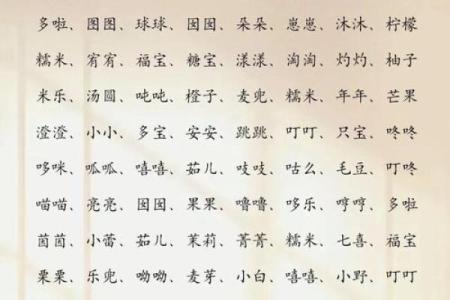 多啦、图图、球球、囡囡、朵朵、崽崽、沐沐、柠檬
糯米、宥宥、福宝、糖宝、漾漾、淘淘、灼灼、柚子
米乐、汤圆、吨吨、橙子、麦兜、糯米、年年、芒果
澄澄、小小、多宝、安安、跳跳、叮叮、只宝、咚咚
哆咪、呱呱、嘻嘻、茹儿、吱吱、咕么、毛豆、叮咚
喵喵、亮亮、囡囡、果果、噜噜、哆乐、哼哼、多啦
茵茵、小蕾、茹儿、茉莉、菁菁、糯米、七喜、福宝
栗栗、乐兜、呦呦、麦芽、小白、嘻嘻、小野、叮叮